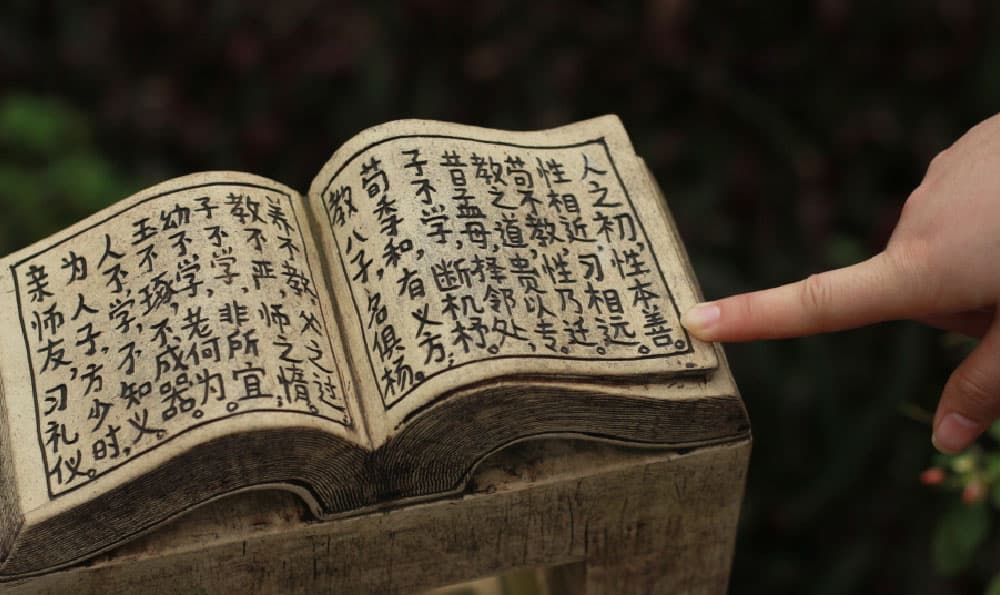 人之初,性本善。
性相近,习相远。
苟不教,性乃迁。
教之道,贵以专。
昔孟母,择邻处,
子不学,断机杼。
荀季和,有义方,
教八子,名俱杨。
养不教,父之过。
教不严,师之情。
子不学,非所宜。
幼不学,老何为。
玉不琢,不成器。
人不学,不知义。
为人子,方少时,
亲师友,习礼仪。